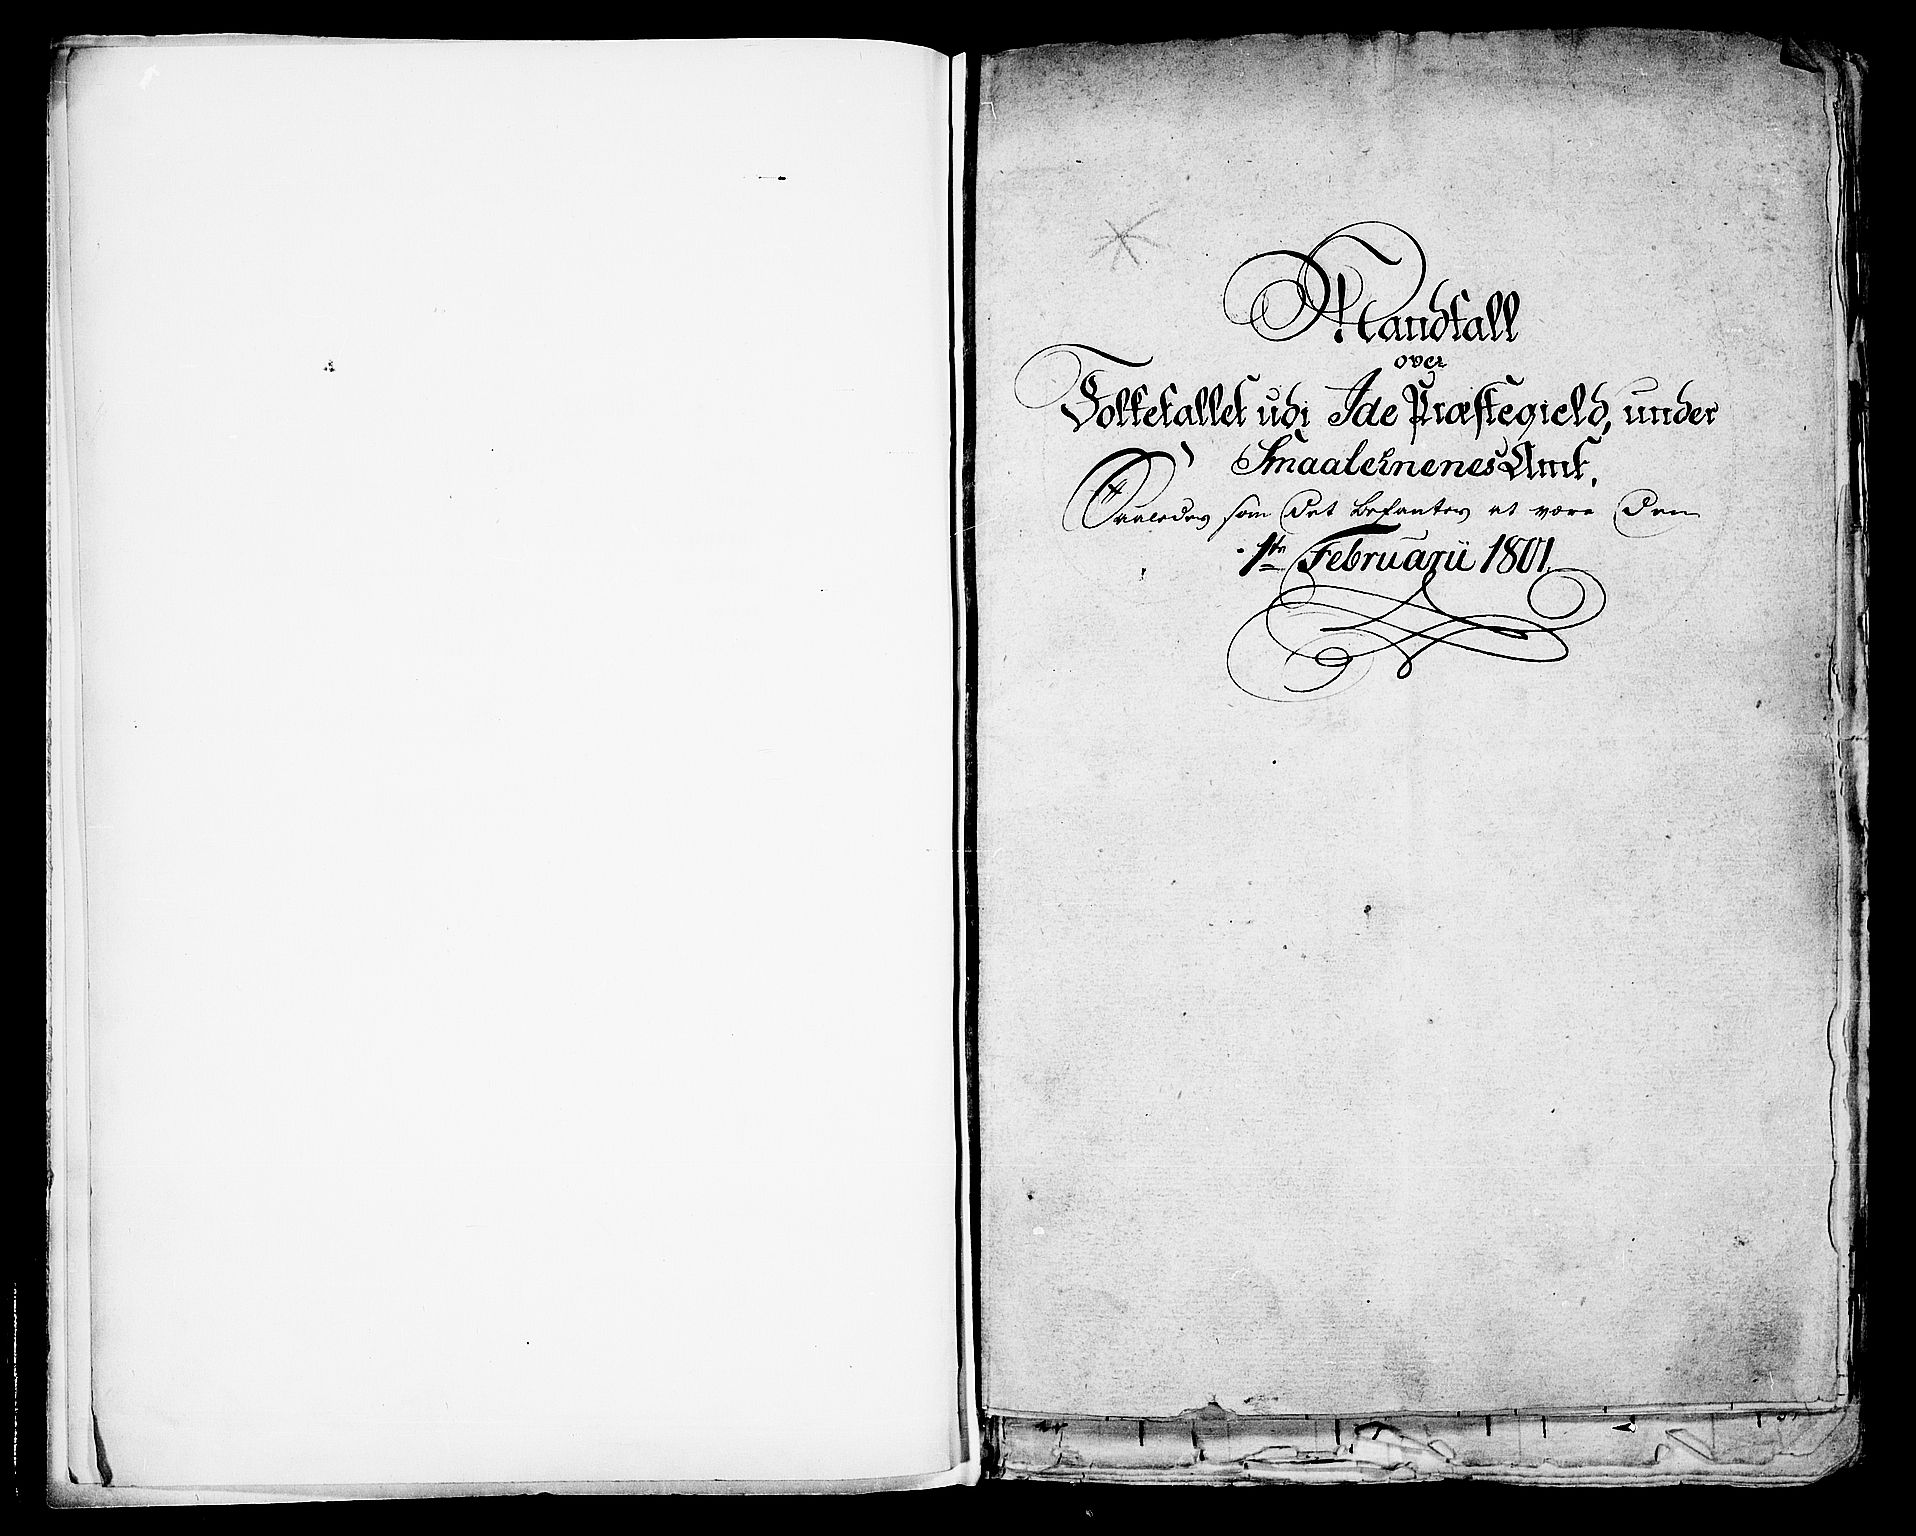 Mandtall
over
Folketallet udi Ide Præstegield, under
Smaalehnenes Amt.
Saaledes som Det befantes at være Den
1ste Februarii 1801.